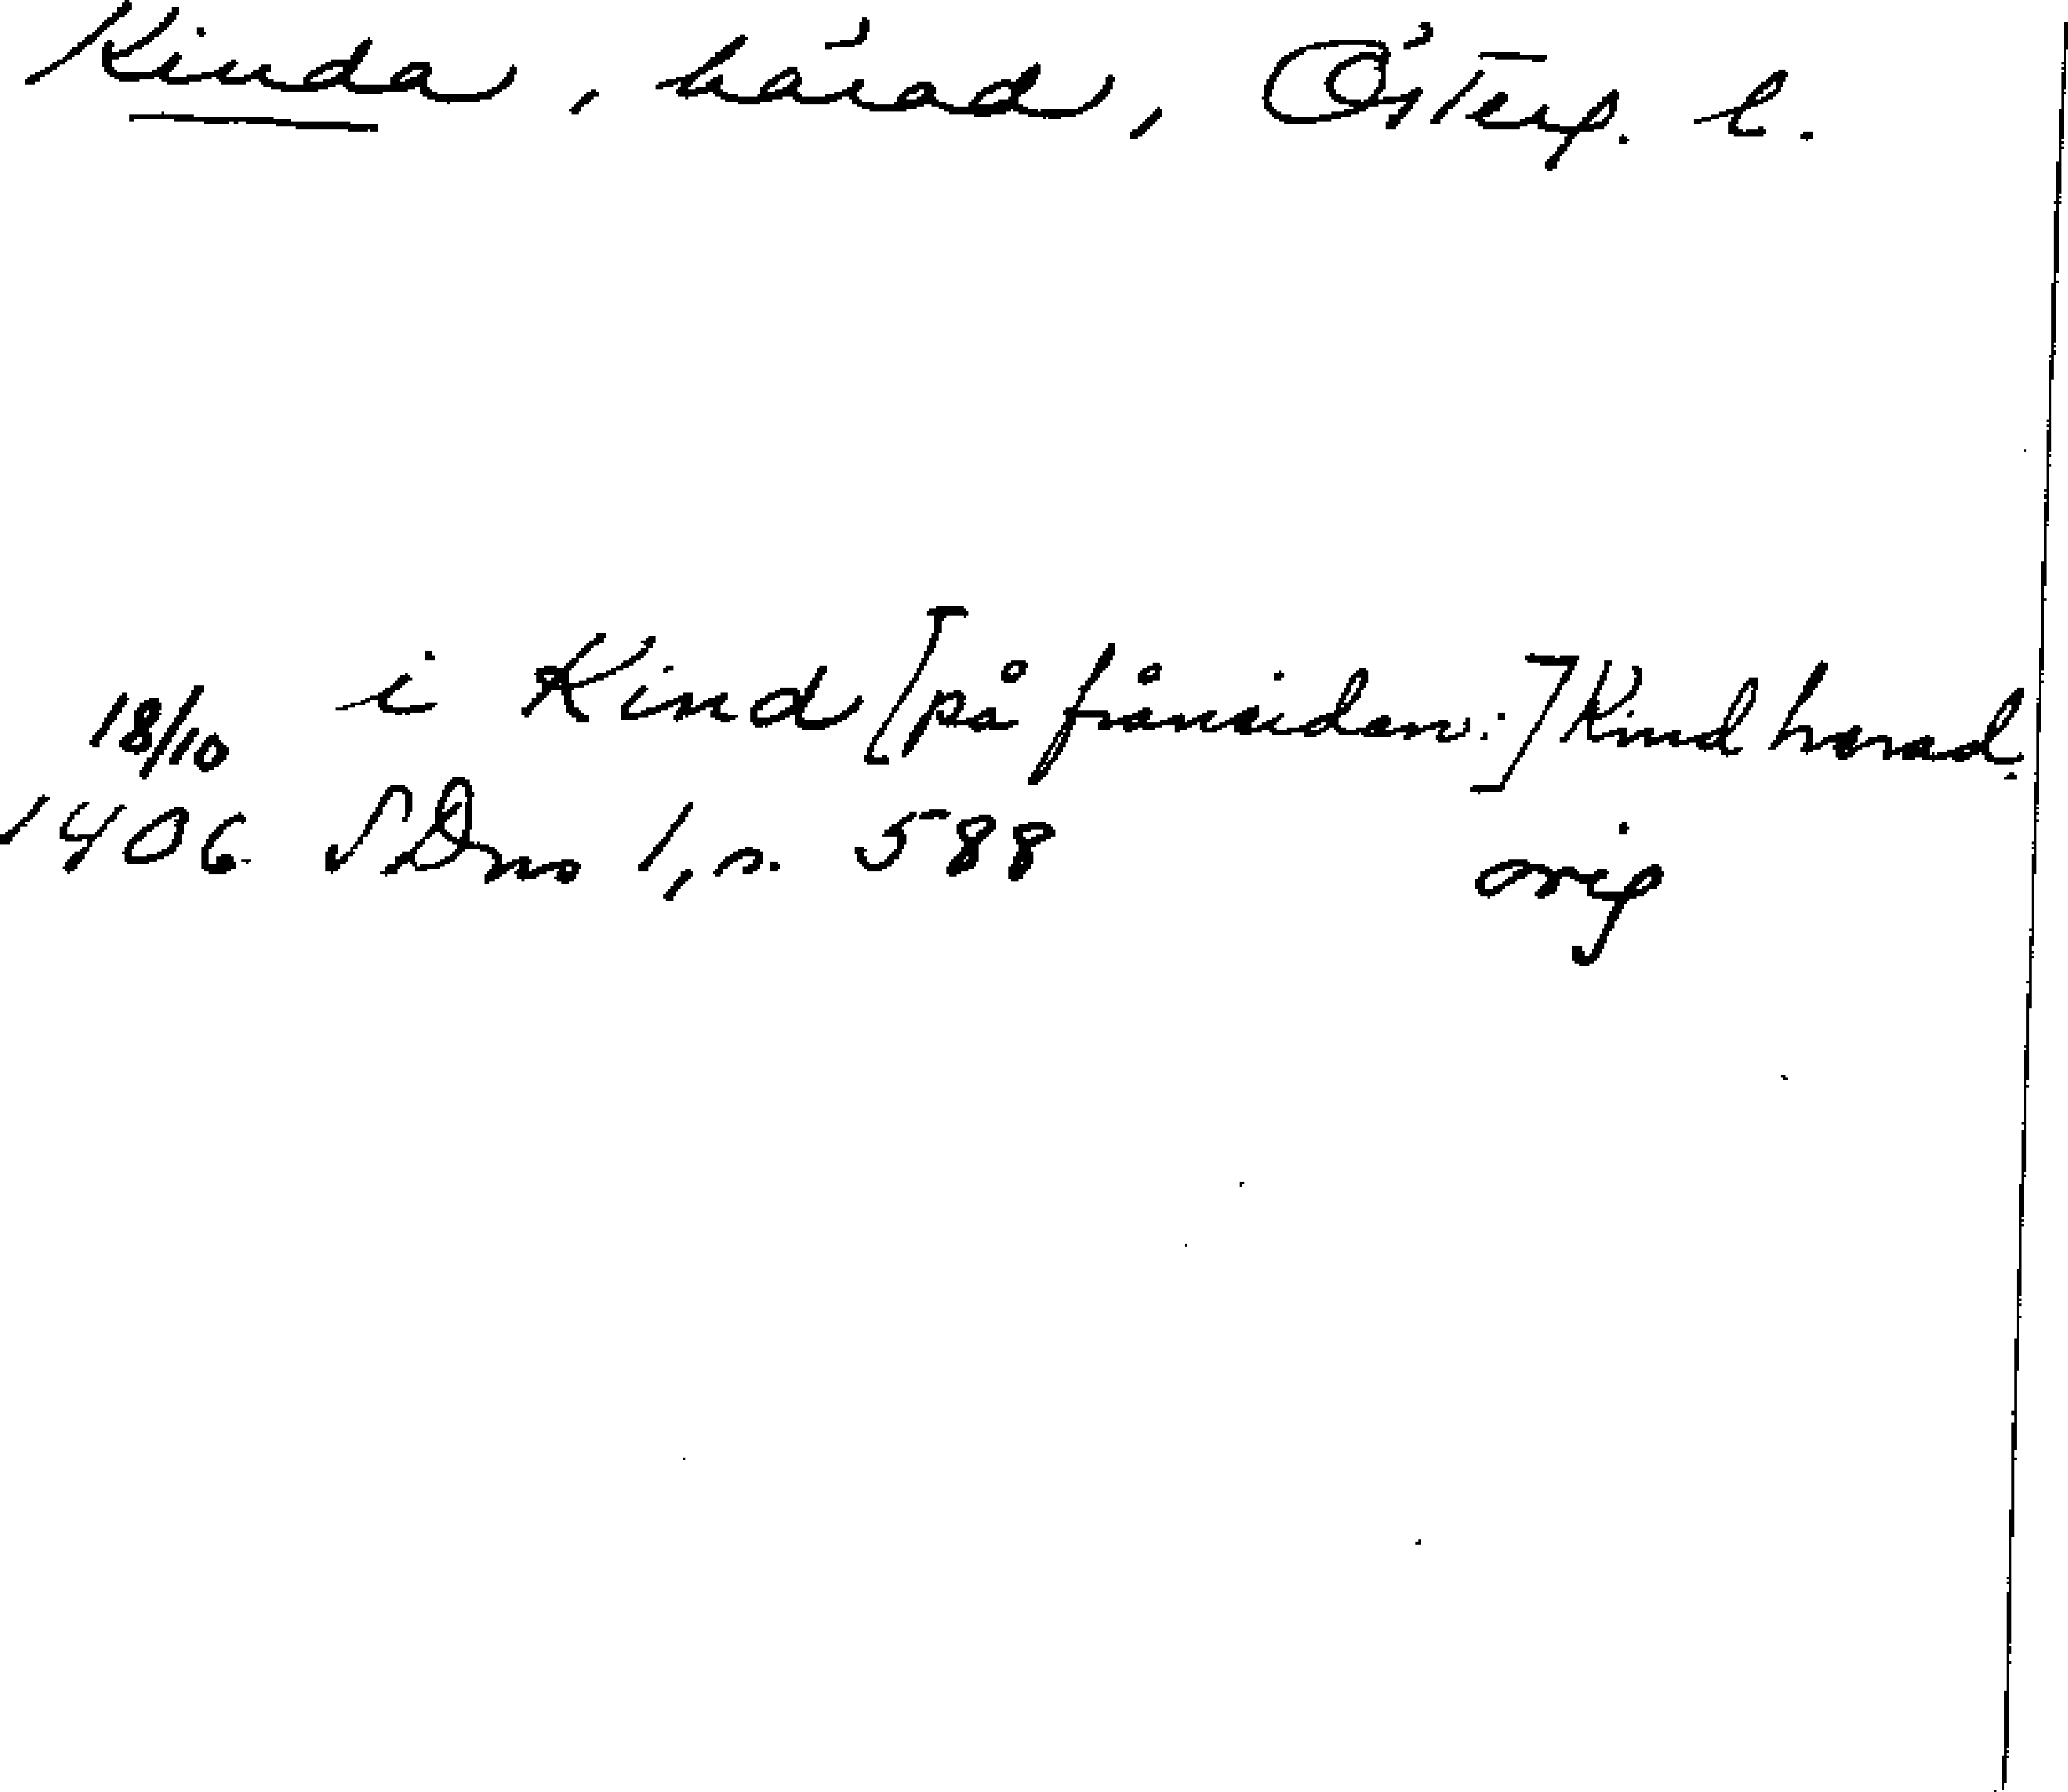 Kinda, härad, Österg. l.
i Kind [på frånsidan:] Kind hærad.
18/10
1406 SDns 1, s. 588 orig